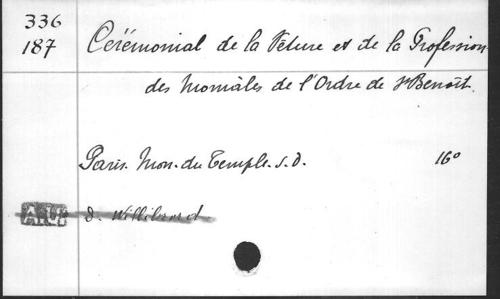 336
187
Cérémonial de la Vêture et de la Profession
des Moniales de l'Ordre de St Benoît.
Paris. Mon. du Temple. s.d. 16°
A.U. D. Willibrord